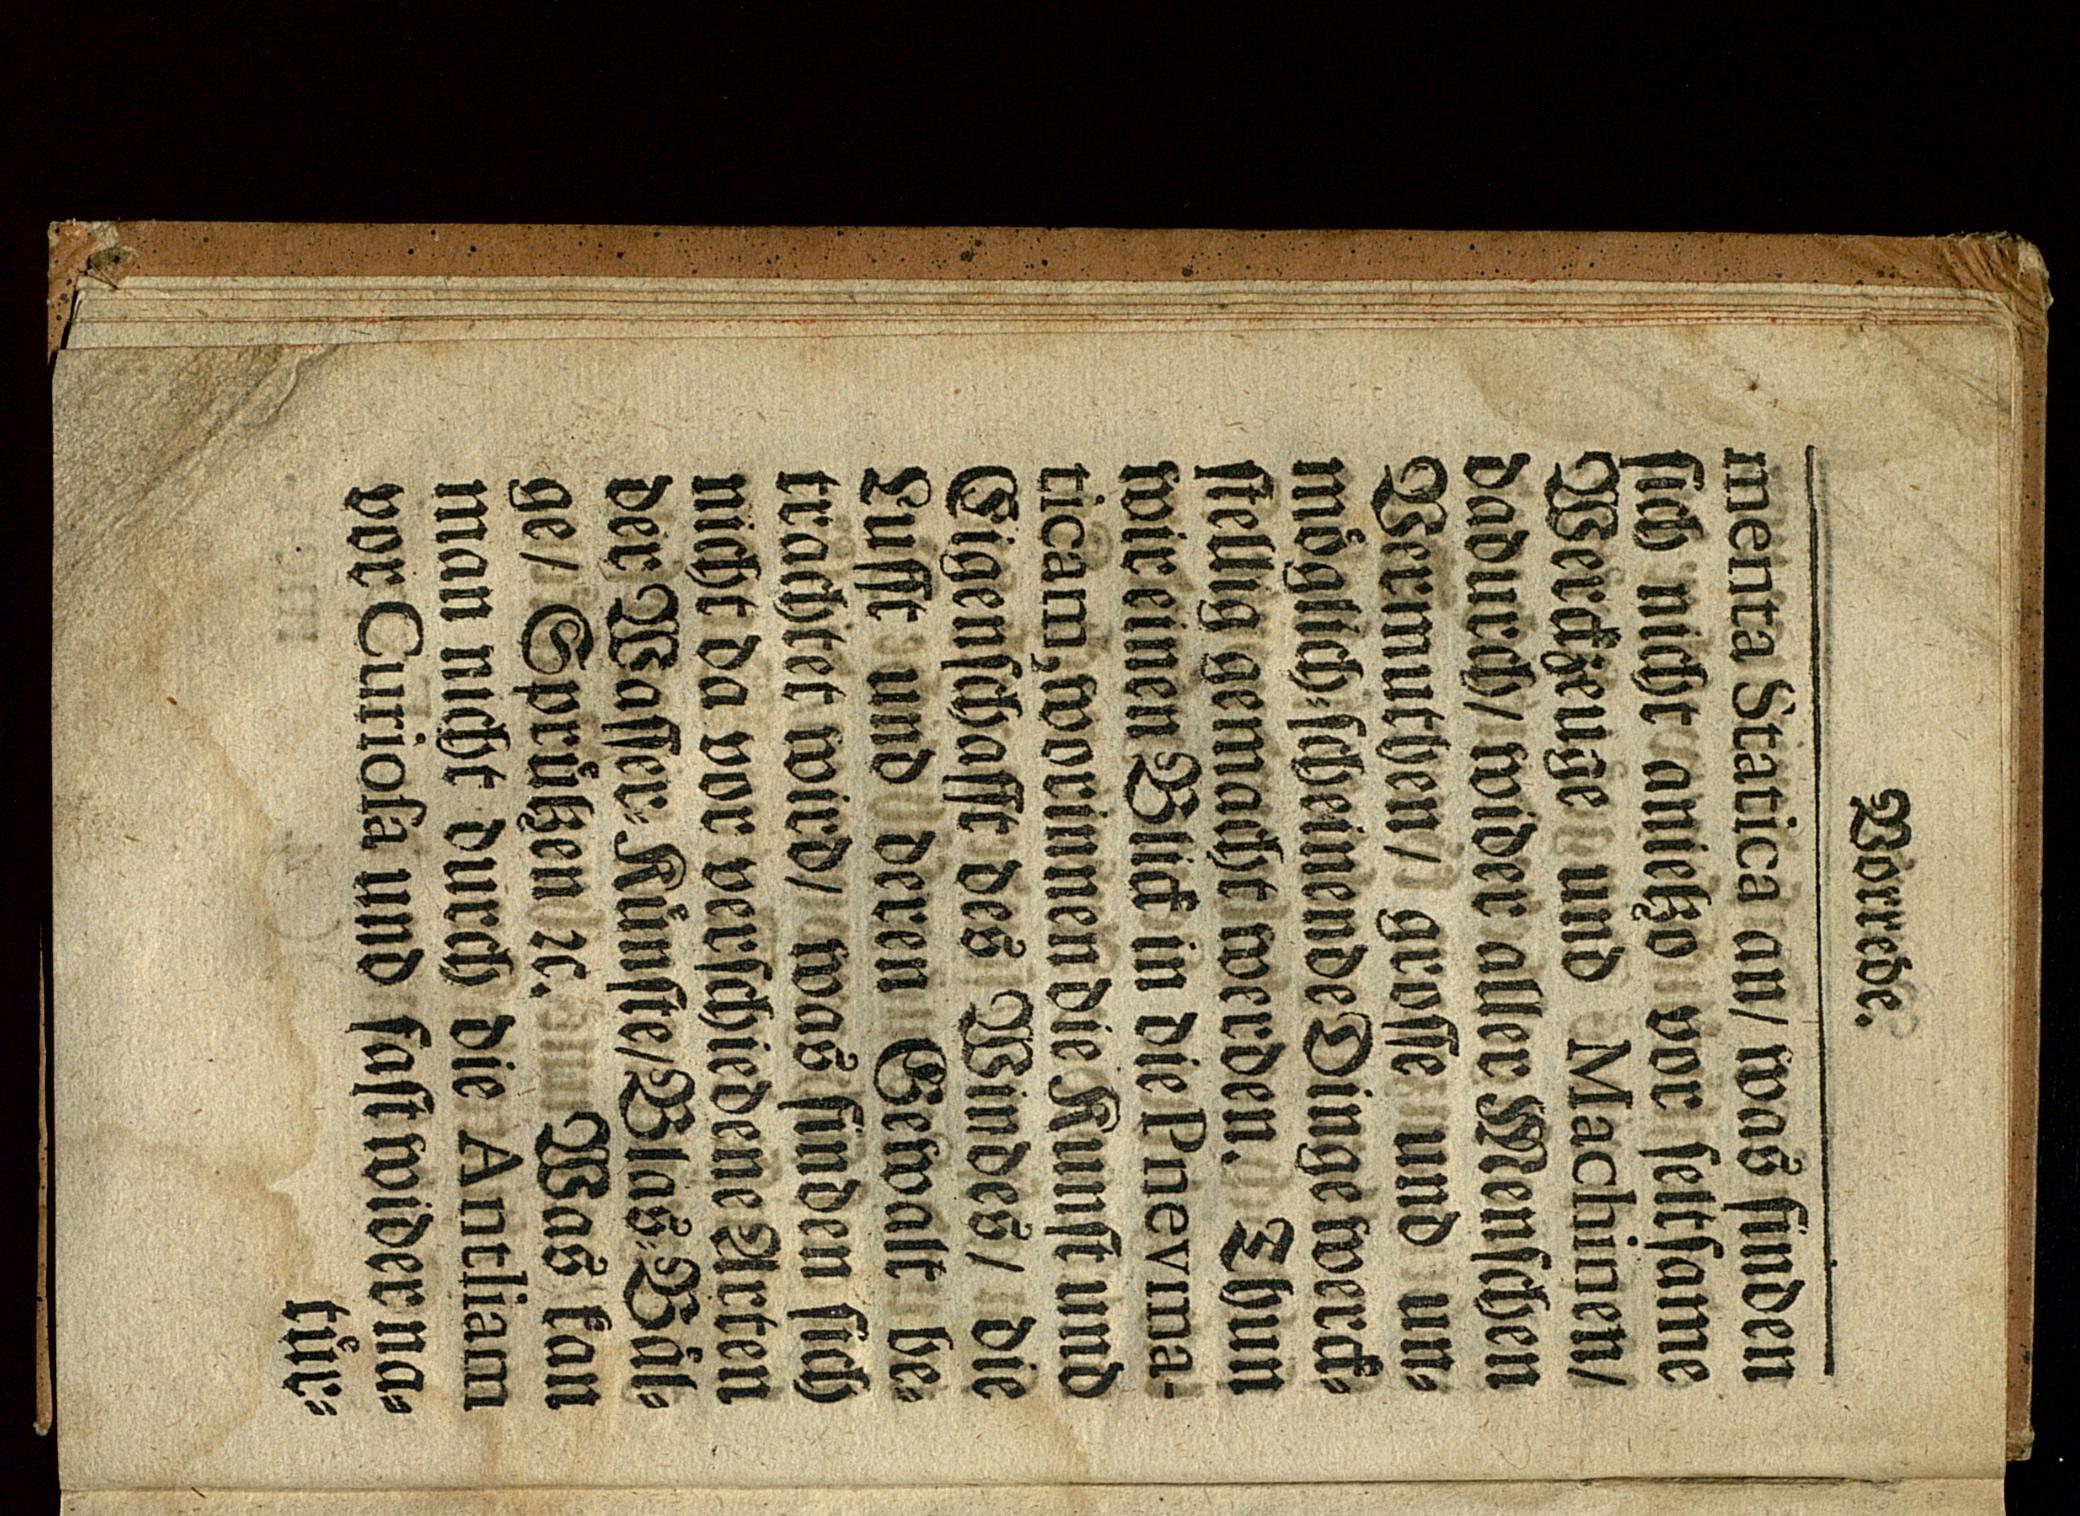 Vorrede.
menta Statica an/ was finden
sich nicht anietzo vor seltsame
Werckzeuge und Machinen/
dadurch/ wider aller Menschen
Vermuthen/ grosse und un⸗
möglich⸗scheinende Dinge werck⸗
stellig gemacht werden. Thun
wir einen Blick in die Pnevma-
ticam, worinnen die Kunst und
Eigenschafft des Windes/ die
Lufft und deren Gewalt be⸗
trachtet wird/ was finden sich
nicht da vor verschiedene Arten
der Wasser⸗Künste/ Blas⸗Bäl⸗
ge/ Sprützen ꝛc. Was kan
man nicht durch die Antliam
vor Curiosa und fast wider na⸗
tür⸗